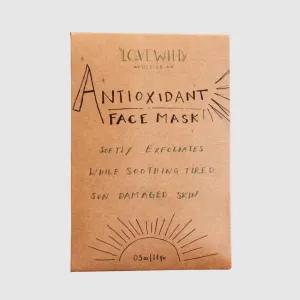 LOVEWILD
ANTIOXIDANT
FACE MASK
SOFTLY EXFOLIATES
WHILE SOOTHING TIRED
SUN DAMAGED SKIN